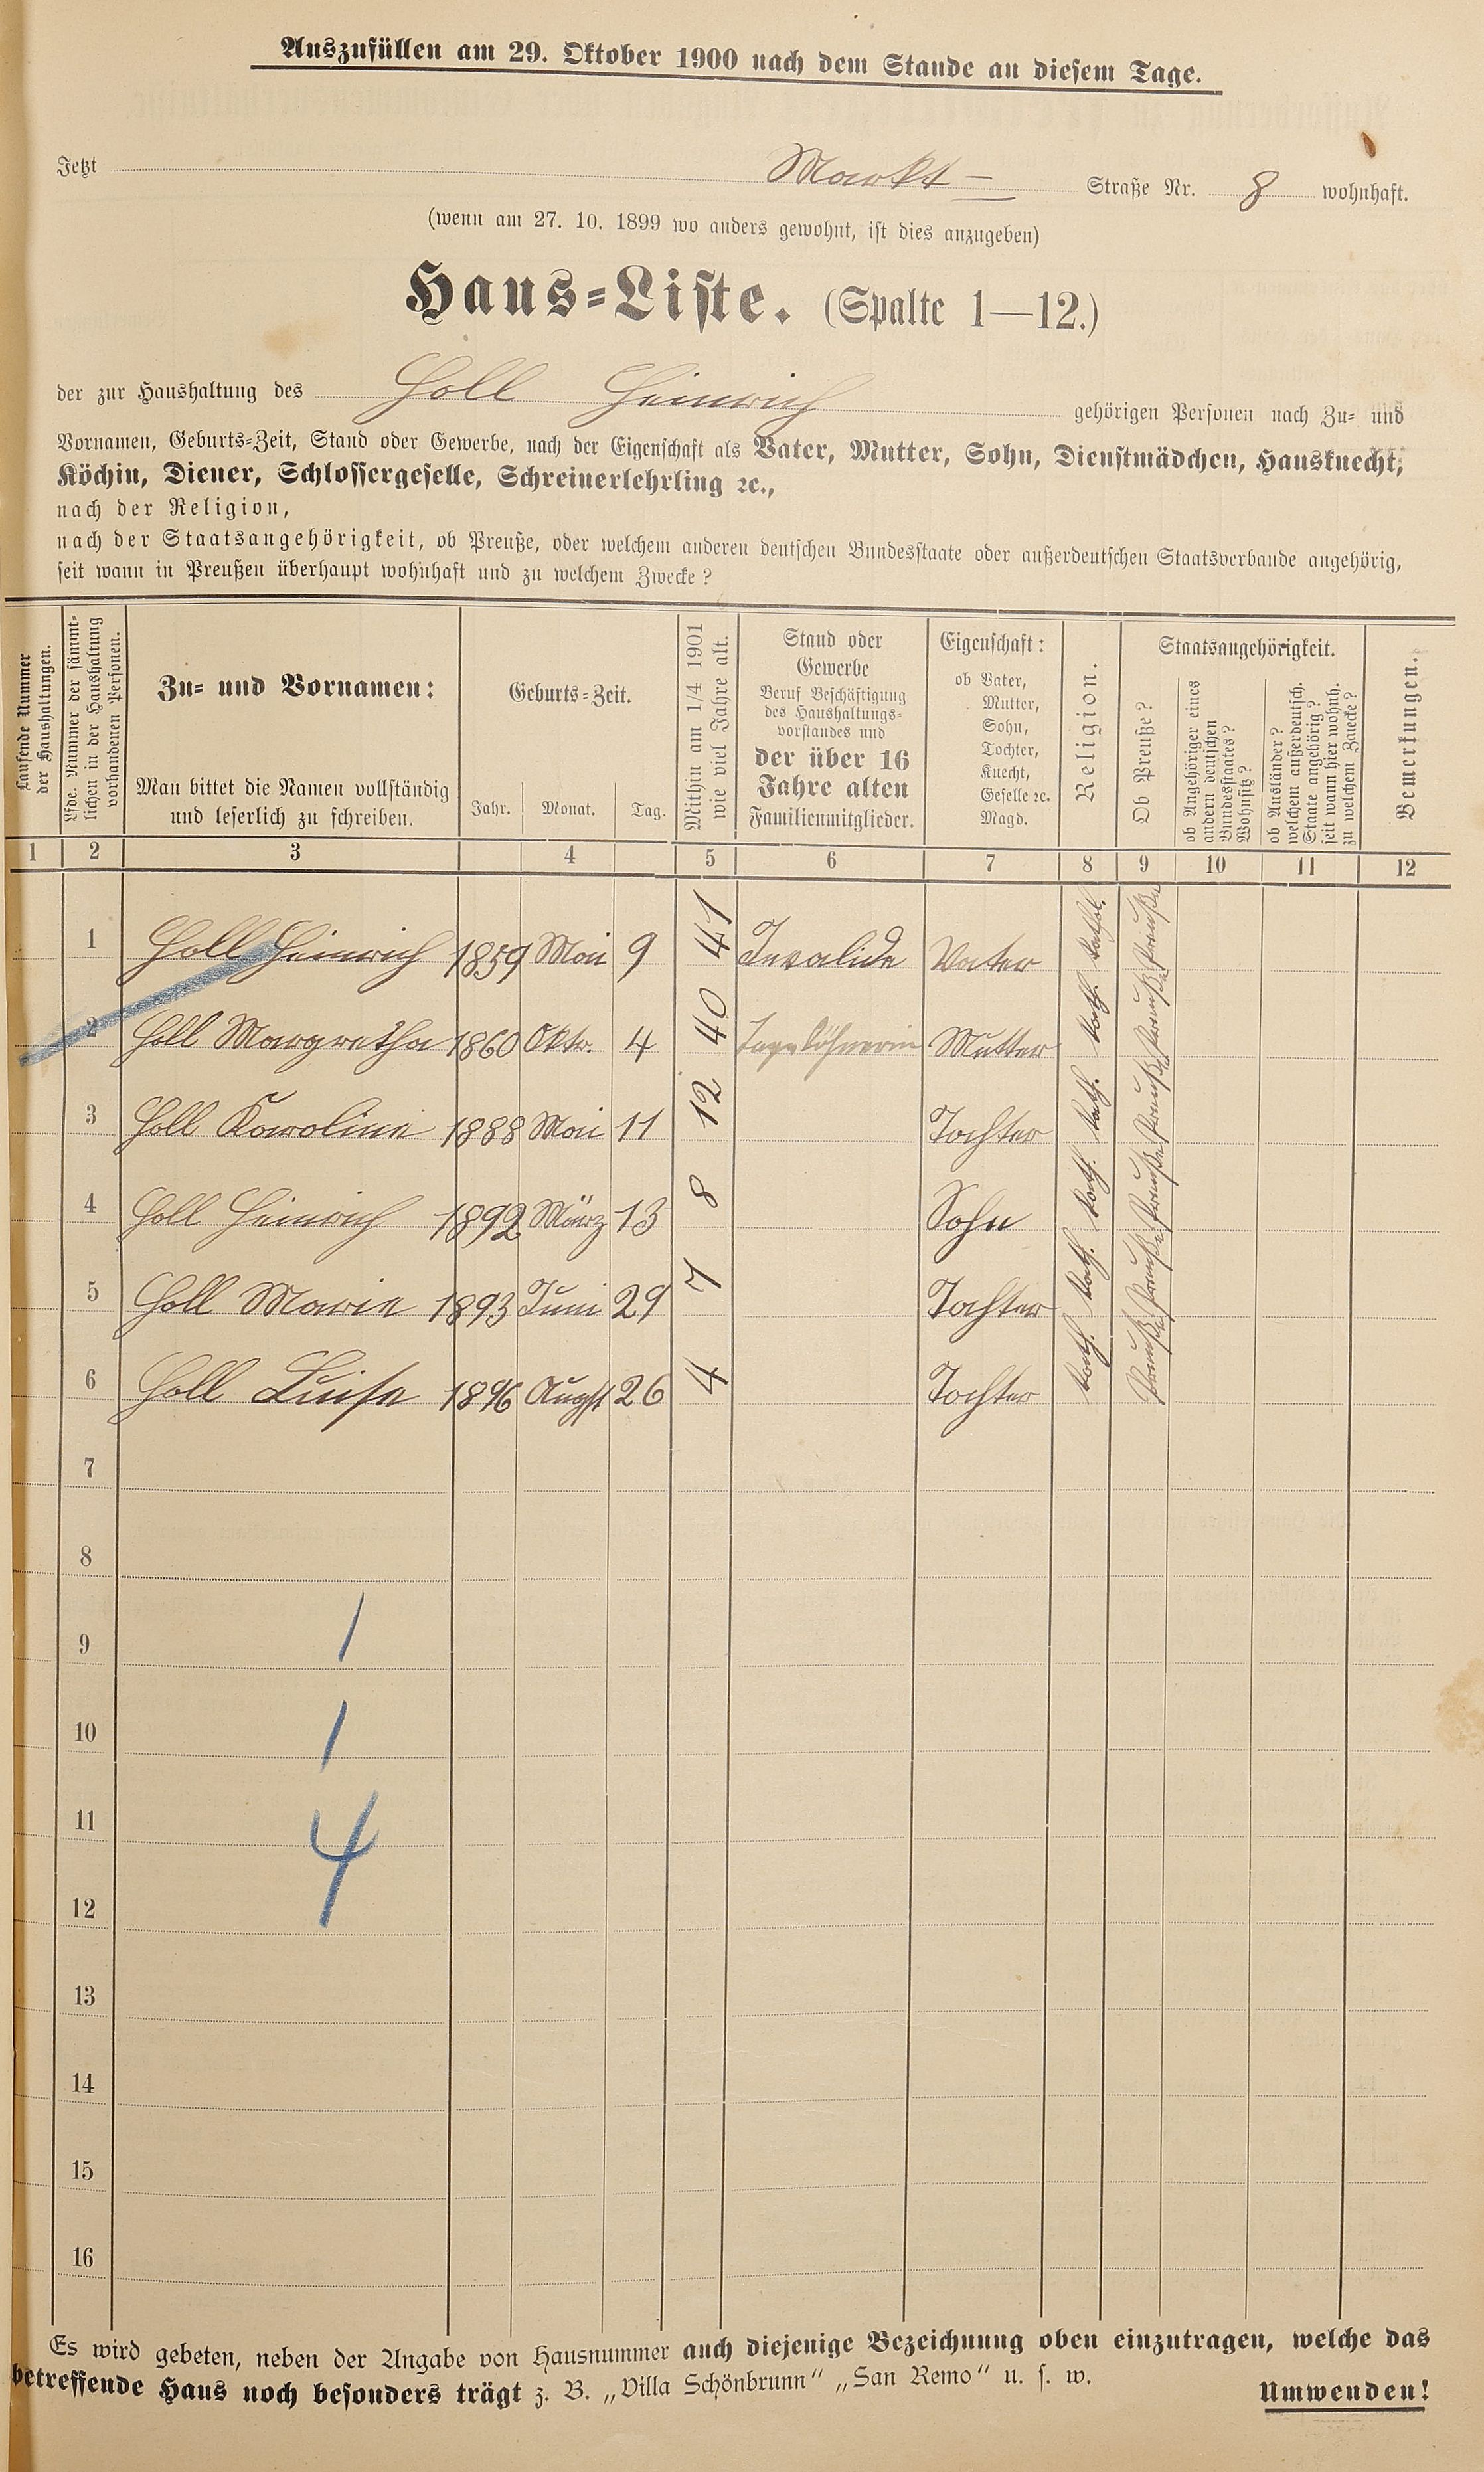 Auszufüllen am 29. Oktober 1900 nach dem Stande an diesem Tage.
Jetzt Markt- Straße Nr. 8 wohnhaft.
(wenn am 27. 10. 1899 wo anders gewohnt, ist dies anzugeben)
Haus-Liste. (Spalte 1—12.)
der zur Haushaltung des Holl Heinrich gehörigen Personen nach Zu- und
Vornamen, Geburts-Zeit, Stand oder Gewerbe, nach der Eigenschaft als Vater, Mutter, Sohn, Dienstmädchen, Hausknecht,
Köchin, Diener, Schlossergeselle, Schreinerlehrling ꝛc.,
nach der Religion,
nach der Staatsangehörigkeit, ob Preuße, oder welchem anderen deutschen Bundesstaate oder außerdeutschen Staatsverbande angehörig,
seit wann in Preußen überhaupt wohnhaft und zu welchem Zwecke?
Laufende Nummer
der Haushaltungen.
Lfde. Nummer der sämmt-
lichen in der Haushaltung
vorhandenen Personen.
Zu- und Vornamen:
Man bittet die Namen vollständig
und leserlich zu schreiben.
Geburts-Zeit.
Jahr. Monat. Tag.
Mithin am 1/4 1901
wie viel Jahre alt.
Stand oder
Gewerbe
Beruf Beschäftigung
des Haushaltungs-
vorstandes und
der über 16
Jahre alten
Familienmitglieder.
Eigenschaft:
ob Vater,
Mutter,
Sohn,
Tochter,
Knecht,
Geselle ꝛc.
Magd.
Religion.
Staatsangehörigkeit.
Ob Preuße?
ob Angehöriger eines
andern deutschen
Bundesstaates?
Wohnsitz?
ob Ausländer?
welchem außerdeutsch.
Staate angehörig?
seit wann hier wohnh.
zu welchem Zwecke?
Bemerkungen.
1 2 3 4 5 6 7 8 9 10 11 12
1 Holl Heinrich 1859 Mai 9 41 Invalide Vater kathol. Preuße
2 Holl Margretha 1860 Oktr. 4 40 Tagelöhnerin Mutter kath. Preuße
3 Holl Karoline 1888 Mai 11 12 Tochter kath. Preuße
4 Holl Heinrich 1892 März 13 8 Sohn kath. Preuße
5 Holl Marie 1893 Juni 29 7 Tochter kath. Preuße
6 Holl Luise 1896 Augst 26 4 Tochter kath. Preuße
7
8
9 1
10 1
11 4
12
13
14
15
16
Es wird gebeten, neben der Angabe von Hausnummer auch diejenige Bezeichnung oben einzutragen, welche das
betreffende Haus noch besonders trägt z. B. „Villa Schönbrunn“ „San Remo“ u. s. w.
Umwenden!